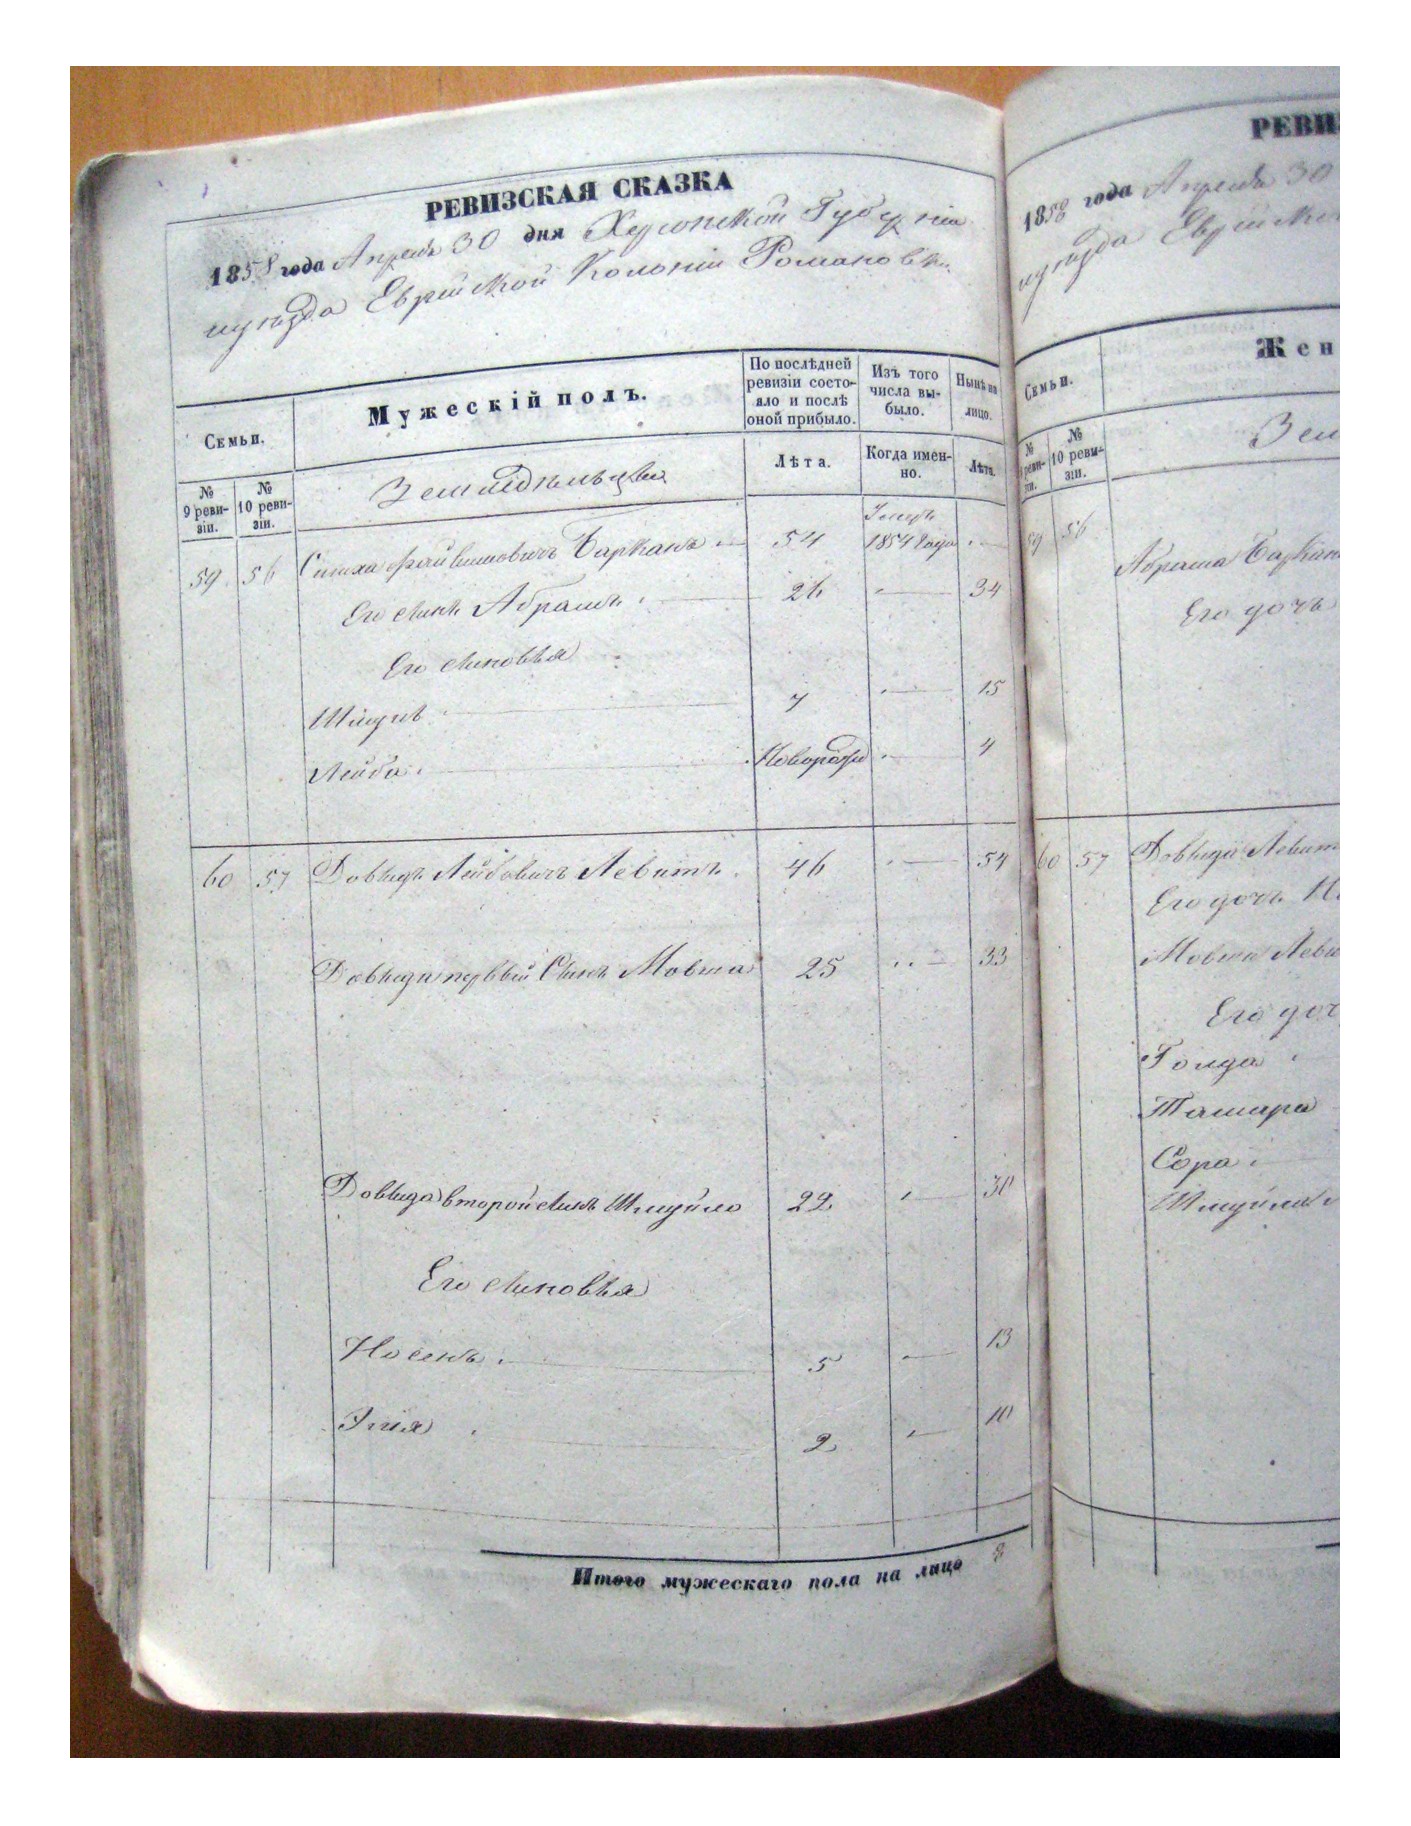 РЕВИЗСКАЯ СКАЗКА
1858 года Апреля 30 дня Херсонской Губерніи
и уѣзда Еврейской Колоніи Романовки
Семьи.
Мужескій полъ.
По послѣдней ревизіи состояло и послѣ оной прибыло.
Изъ того числа выбыло.
Нынѣ на лицо.
№ 9 ревизіи.
№ 10 ревизіи.
Земледѣльцы
Лѣта.
Когда именно.
Лѣта.
59 56 Симха Файвишовичъ Барканъ 54 Умеръ 1854 года
Его сынъ Абрамъ 26 34
Его сыновья
Шмулъ 7 15
Лейба Новорожд 4
60 57 Довидъ Лейбовичъ Левитъ 46 54
Довида первый Сынъ Мовша 25 33
Довида второй сынъ Шмуйло 22 30
Его сыновья
Носенъ 5 13
2 10
Итого мужескаго пола на лицо 8
РЕВИ
1858 года Апреля 30
и уѣзда Еврейской
Жен
Семьи.
№ 9 ревизіи.
№ 10 ревизіи.
Зем
59 56 Абрама Баркана
Его дочь
60 57 Довида Левит
Его дочь
Мовши Леви
Его доч
Голда
Тамара
Сора
Шмуйла